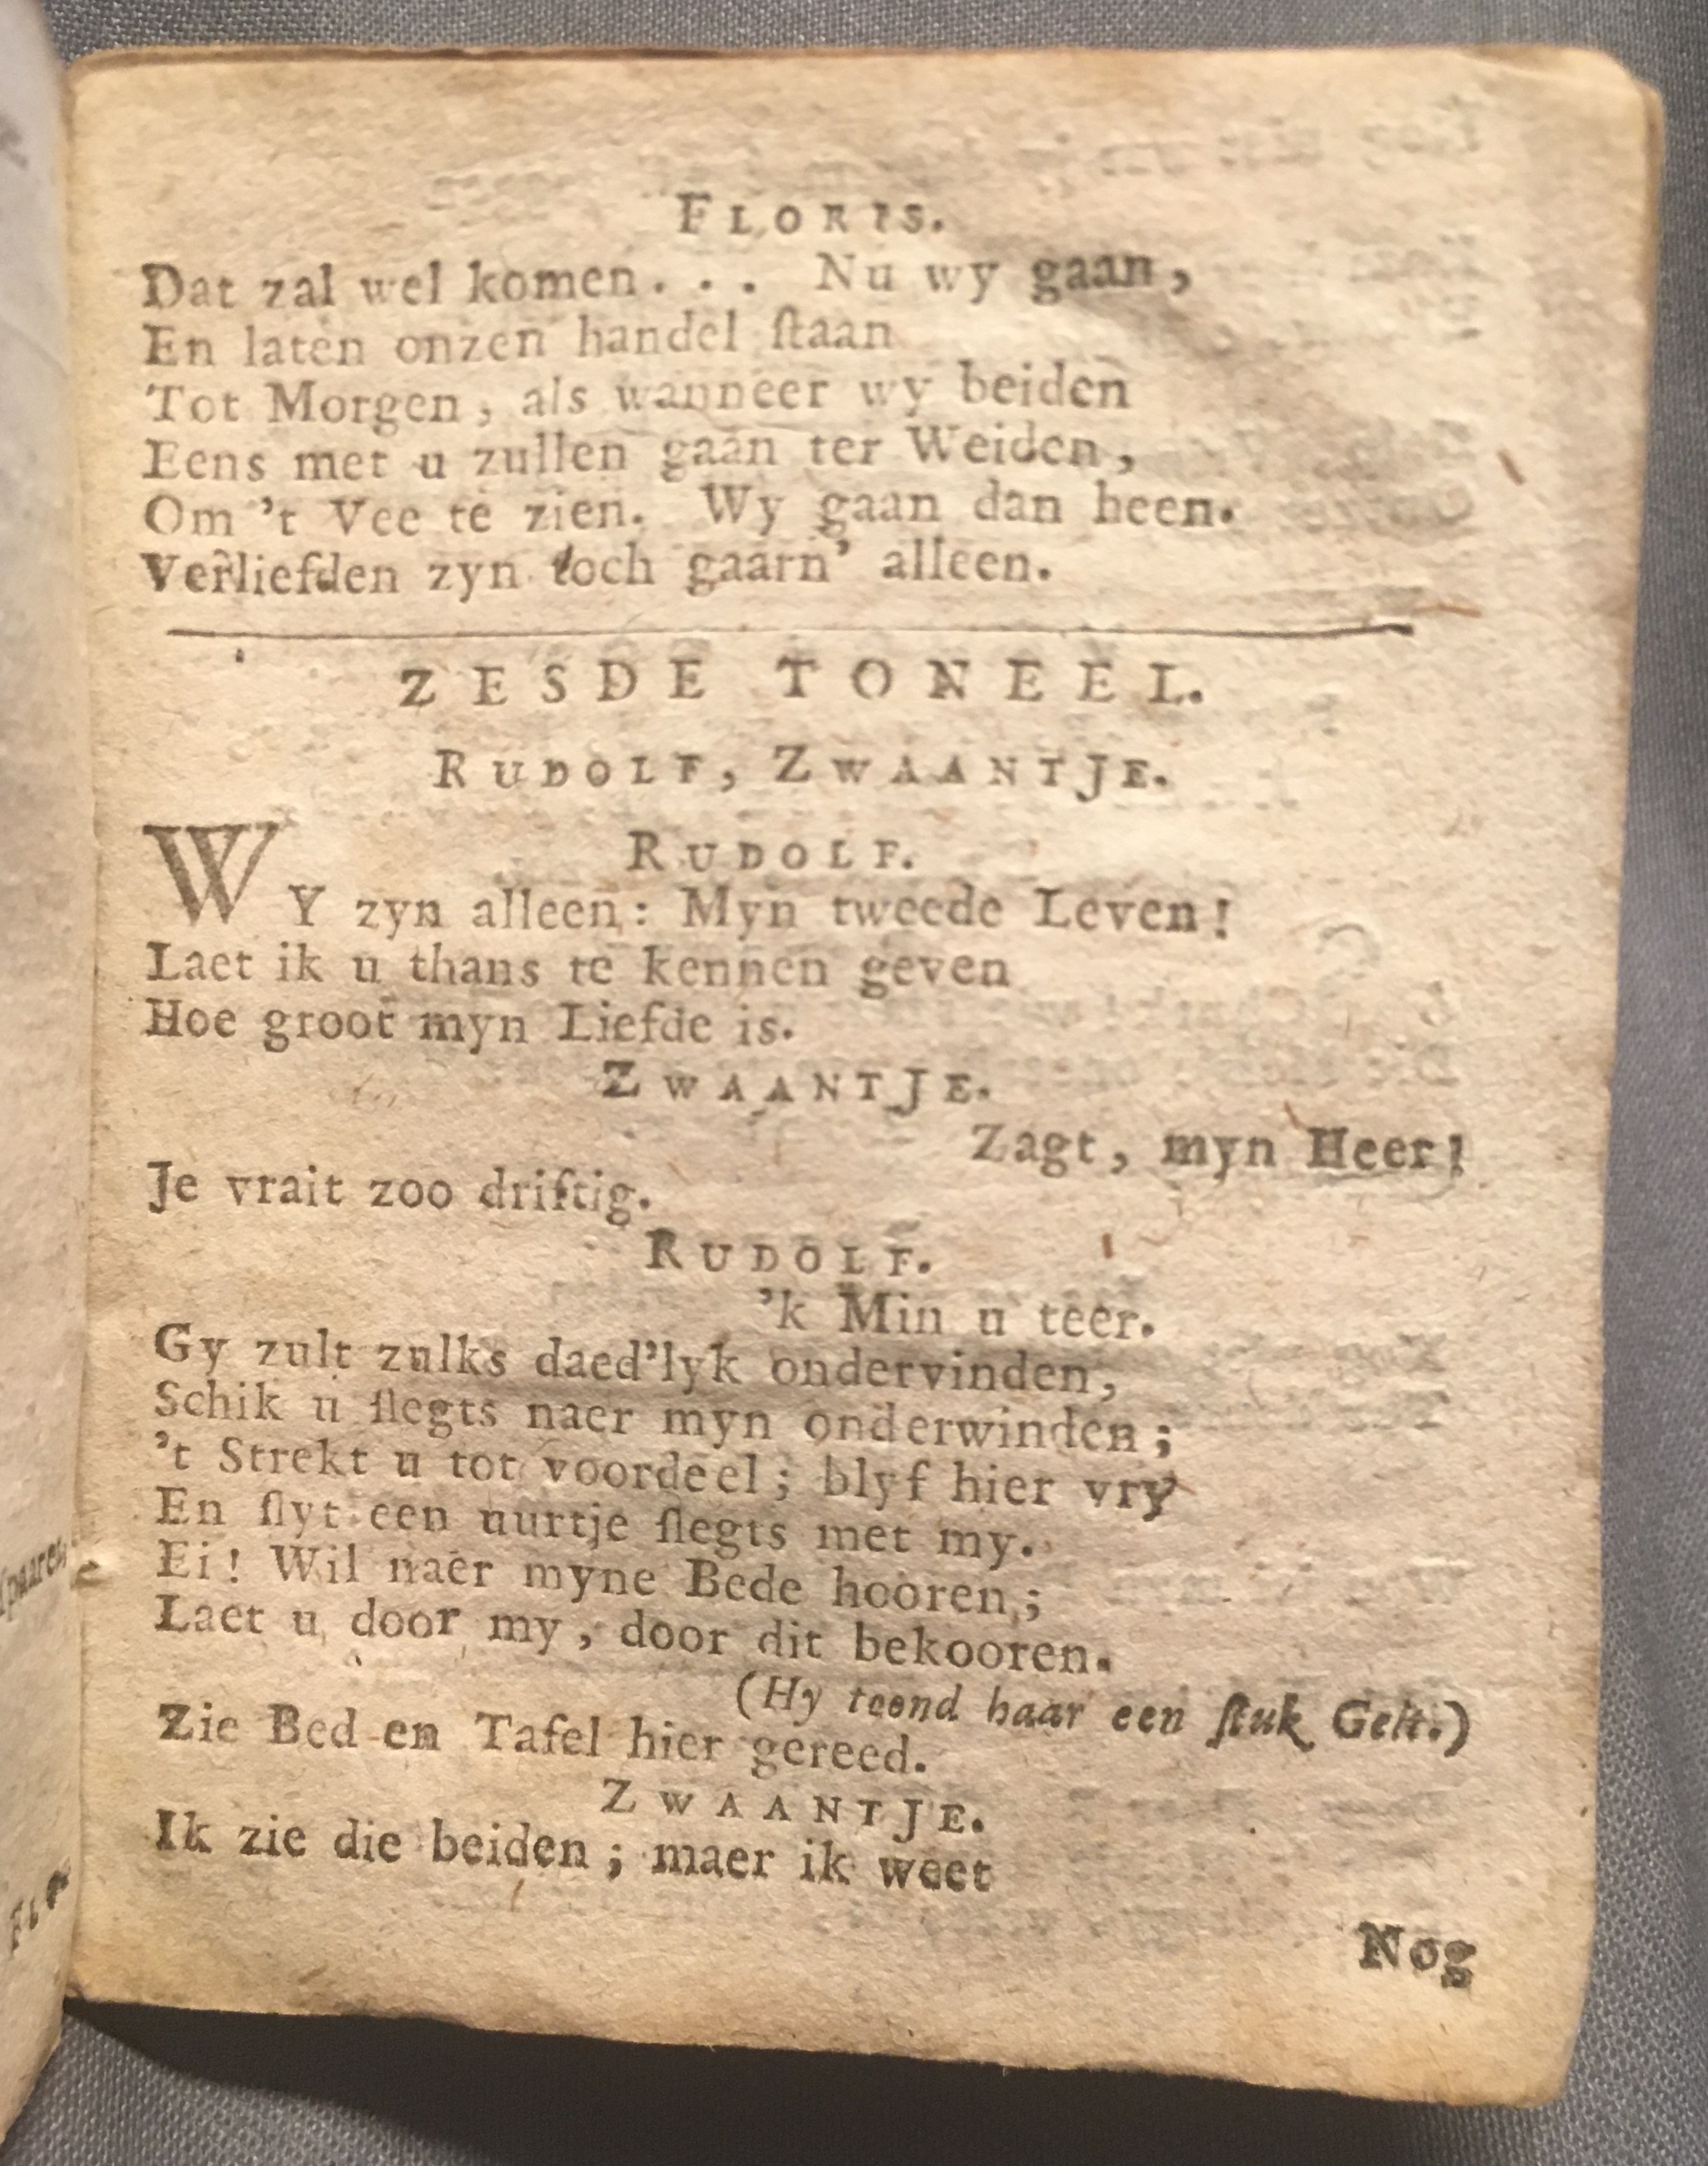 FLORIS.
Dat zal wel komen. . . Nu wy gaan,
En laten onzen handel ſtaan
Tot Morgen, als wanneer wy beiden
Eens met u zullen gaan ter Weiden,
Om 't Vee te zien. Wy gaan dan heen.
Verliefden zyn toch gaarn' alleen.
ZESDE TONEEL.
RUDOLF, ZWAANTJE.
RUDOLF.
WY zyn alleen: Myn tweede Leven!
Laet ik u thans te kennen geven
Hoe groot myn Liefde is.
ZWAANTJE.
Zagt, myn Heer!
Je vrait zoo driftig.
RUDOLF.
'k Min u teer.
Gy zult zulks daed'lyk ondervinden,
Schik u ſlegts naer myn onderwinden;
't Strekt u tot voordeel; blyf hier vry
En ſlyt een uurtje ſlegts met my.
Ei! Wil naer myne Bede hooren;
Laet u door my, door dit bekooren.
(Hy toond haar een ſtuk Gelt.)
Zie Bed en Tafel hier gereed.
ZWAANTJE.
Ik zie die beiden; maer ik weet
Nog